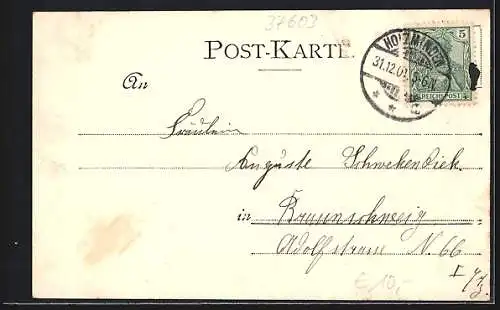 37603
POST-KARTE.
HOLZMINDEN
31.12.01. 5-6N
5
REICHSPOST
An
Fräulein
Auguste Schwekendiek
in Braunschweig
Adolfstrasse N. 66
I
€ 10,-